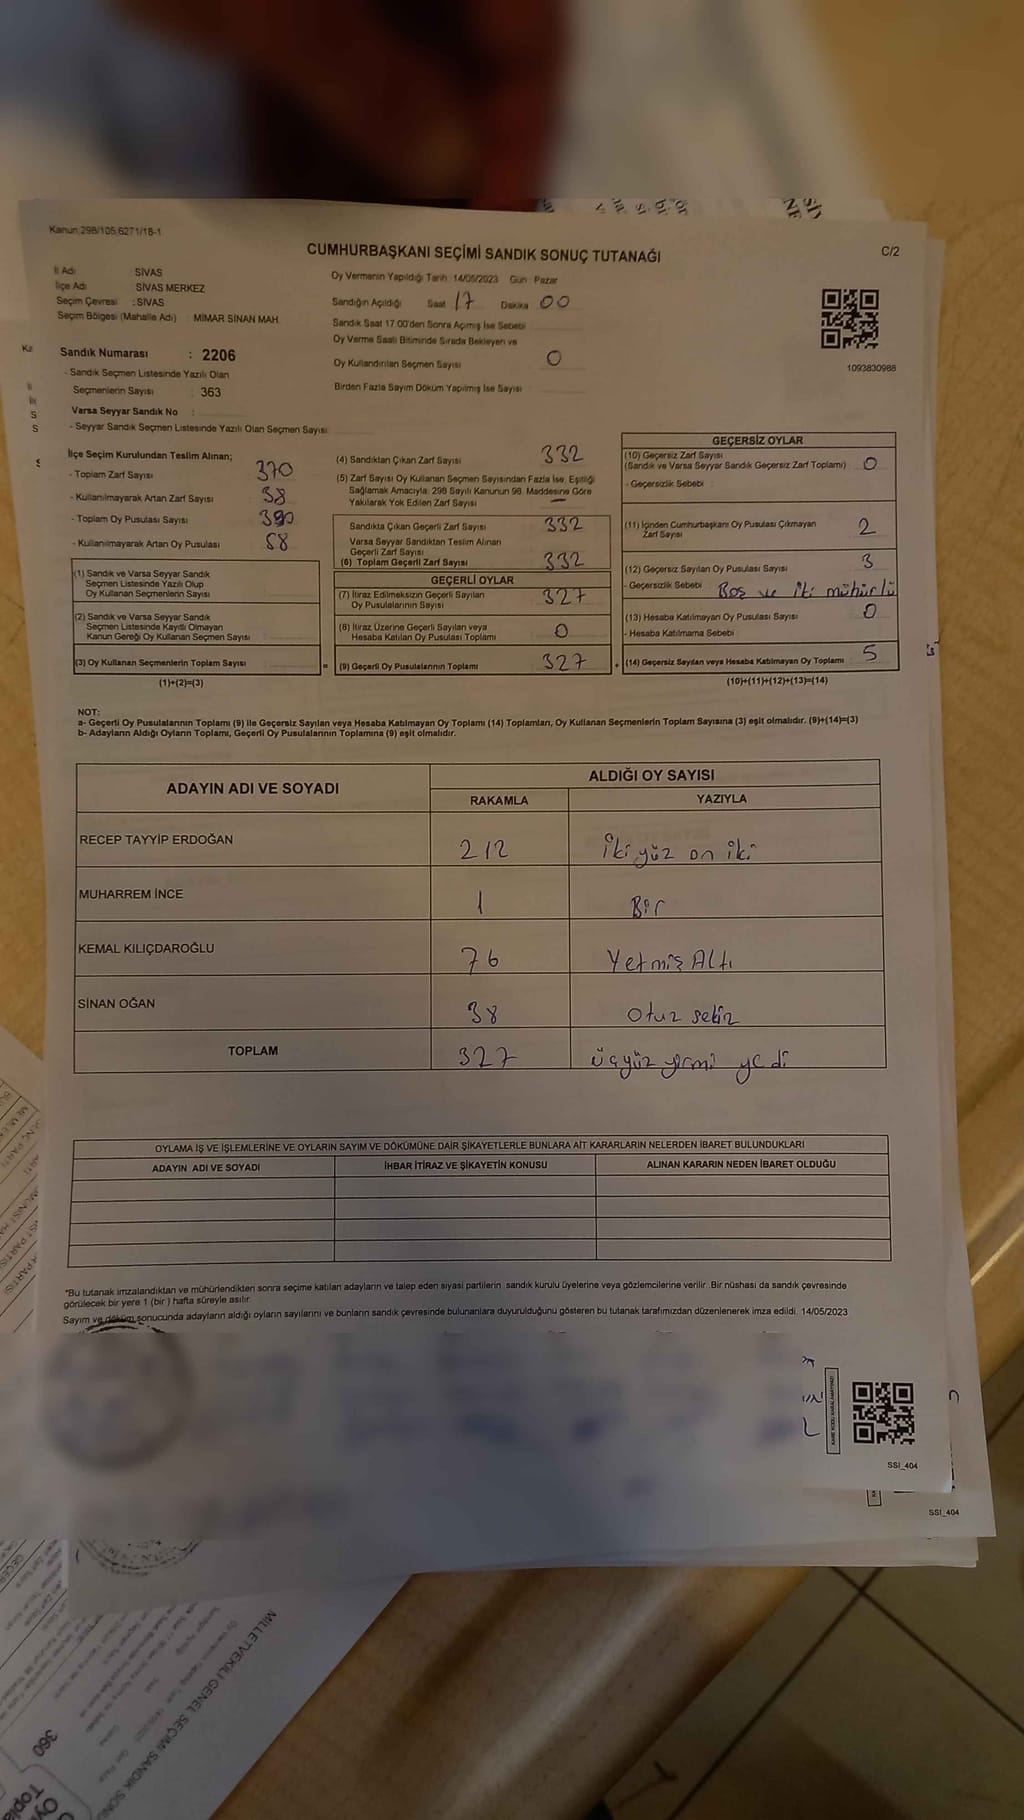 Kanun:298/105,6271/18-1
CUMHURBAŞKANI SEÇİMİ SANDIK SONUÇ TUTANAĞI
C/2
İl Adı : SİVAS
İlçe Adı : SİVAS MERKEZ
Seçim Çevresi : SİVAS
Seçim Bölgesi (Mahalle Adı) : MİMAR SİNAN MAH.
Sandık Numarası : 2206
- Sandık Seçmen Listesinde Yazılı Olan
Seçmenlerin Sayısı : 363
Varsa Seyyar Sandık No :
- Seyyar Sandık Seçmen Listesinde Yazılı Olan Seçmen Sayısı
Oy Vermenin Yapıldığı Tarih : 14/05/2023 Gün : Pazar
Sandığın Açıldığı Saat 17 Dakika 00
Sandık Saat 17.00'den Sonra Açımış İse Sebebi
Oy Verme Saati Bitiminde Sırada Bekleyen ve
Oy Kullandırılan Seçmen Sayısı 0
Birden Fazla Sayım Döküm Yapılmış İse Sayısı
1093830988
İlçe Seçim Kurulundan Teslim Alınan;
- Toplam Zarf Sayısı 370
- Kullanılmayarak Artan Zarf Sayısı 38
- Toplam Oy Pusulası Sayısı 390
- Kullanılmayarak Artan Oy Pusulası 58
(1) Sandık ve Varsa Seyyar Sandık
Seçmen Listesinde Yazılı Olup
Oy Kullanan Seçmenlerin Sayısı
(2) Sandık ve Varsa Seyyar Sandık
Seçmen Listesinde Kayıtlı Olmayan
Kanun Gereği Oy Kullanan Seçmen Sayısı
(3) Oy Kullanan Seçmenlerin Toplam Sayısı =
(1)+(2)=(3)
(4) Sandıktan Çıkan Zarf Sayısı 332
(5) Zarf Sayısı Oy Kullanan Seçmen Sayısından Fazla İse, Eşitliği
Sağlamak Amacıyla; 298 Sayılı Kanunun 98. Maddesine Göre
Yakılarak Yok Edilen Zarf Sayısı —
Sandıkta Çıkan Geçerli Zarf Sayısı 332
Varsa Seyyar Sandıktan Teslim Alınan
Geçerli Zarf Sayısı
(6) Toplam Geçerli Zarf Sayısı 332
GEÇERLİ OYLAR
(7) İtiraz Edilmeksizin Geçerli Sayılan
Oy Pusulalarının Sayısı 327
(8) İtiraz Üzerine Geçerli Sayılan veya
Hesaba Katılan Oy Pusulası Toplamı 0
(9) Geçerli Oy Pusulalarının Toplamı 327 +
GEÇERSİZ OYLAR
(10) Geçersiz Zarf Sayısı
(Sandık ve Varsa Seyyar Sandık Geçersiz Zarf Toplamı) 0
- Geçersizlik Sebebi :
(11) İçinden Cumhurbaşkanı Oy Pusulası Çıkmayan
Zarf Sayısı 2
(12) Geçersiz Sayılan Oy Pusulası Sayısı 3
- Geçersizlik Sebebi : Boş ve iki mühürlü
(13) Hesaba Katılmayan Oy Pusulası Sayısı 0
- Hesaba Katılmama Sebebi :
(14) Geçersiz Sayılan veya Hesaba Katılmayan Oy Toplamı 5
(10)+(11)+(12)+(13)=(14)
NOT:
a- Geçerli Oy Pusulalarının Toplamı (9) ile Geçersiz Sayılan veya Hesaba Katılmayan Oy Toplamı (14) Toplamları, Oy Kullanan Seçmenlerin Toplam Sayısına (3) eşit olmalıdır. (9)+(14)=(3)
b- Adayların Aldığı Oyların Toplamı, Geçerli Oy Pusulalarının Toplamına (9) eşit olmalıdır.
ADAYIN ADI VE SOYADI ALDIĞI OY SAYISI
RAKAMLA YAZIYLA
RECEP TAYYİP ERDOĞAN 212 İki yüz on iki
MUHARREM İNCE 1 Bir
KEMAL KILIÇDAROĞLU 76 Yetmiş Altı
SİNAN OĞAN 38 Otuz sekiz
TOPLAM 327 üçyüz yirmi yedi
OYLAMA İŞ VE İŞLEMLERİNE VE OYLARIN SAYIM VE DÖKÜMÜNE DAİR ŞİKAYETLERLE BUNLARA AİT KARARLARIN NELERDEN İBARET BULUNDUKLARI
ADAYIN ADI VE SOYADI İHBAR İTİRAZ VE ŞİKAYETİN KONUSU ALINAN KARARIN NEDEN İBARET OLDUĞU
*Bu tutanak imzalandıktan ve mühürlendikten sonra seçime katılan adayların ve talep eden siyasi partilerin sandık kurulu üyelerine veya gözlemcilerine verilir. Bir nüshası da sandık çevresinde
görülecek bir yere 1 (bir ) hafta süreyle asılır.
Sayım ve döküm sonucunda adayların aldığı oyların sayılarını ve bunların sandık çevresinde bulunanlara duyurulduğunu gösteren bu tutanak tarafımızdan düzenlenerek imza edildi. 14/05/2023
SSI_404
SSI_404
MİLLETVEKİLİ GENEL SEÇİMİ SANDIK SONU
360